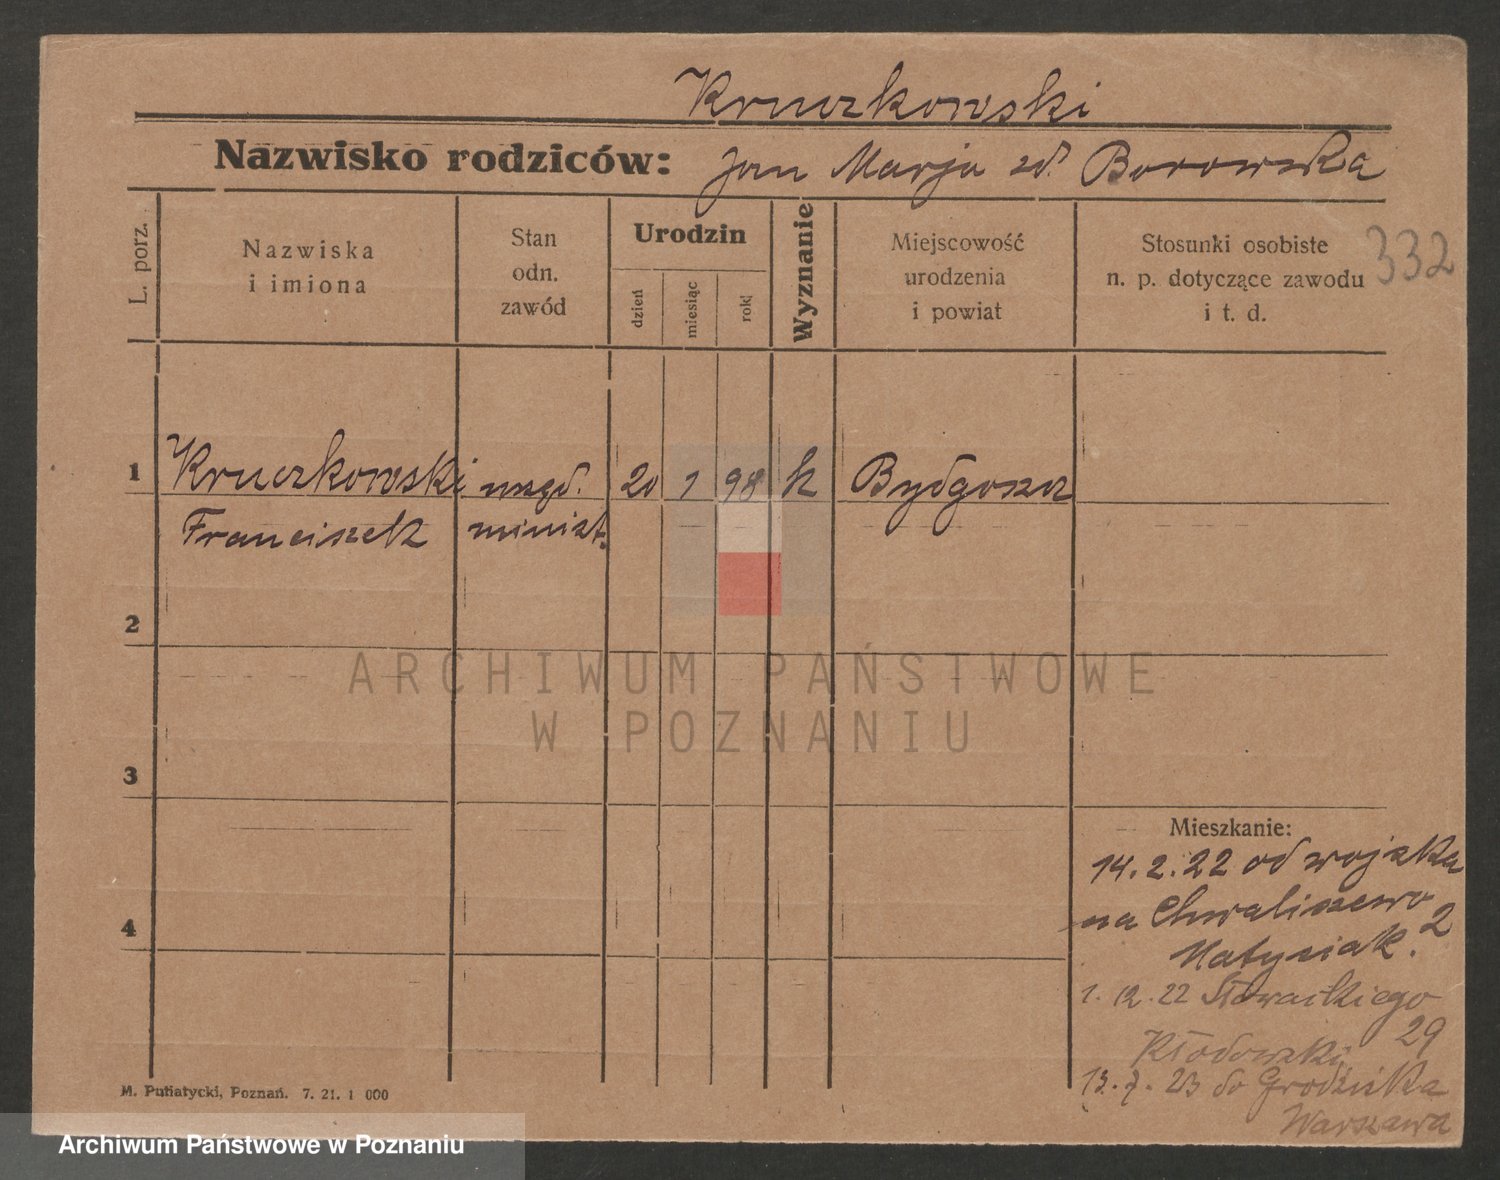 Kruczkowski
Nazwisko rodziców: Jan Marja zd. Borowska
332
L. porz.
Nazwiska
i imiona
Stan
odn.
zawód
Urodzin
dzień
miesiąc
rok
Wyznanie
Miejscowość
urodzenia
i powiat
Stosunki osobiste
n. p. dotyczące zawodu
i t. d.
1 Kruczkowski urzęd. 20 1 98 k Bydgoszcz
Franciszek minist.
2
3
4
ARCHIWUM PAŃSTWOWE
W POZNANIU
Mieszkanie:
14.2.22 od wojska
na Chwaliszewo 2
Matysiak.
1.12.22 Słowackiego
29
Kłodowski
13.7.23 do Grodziska
Warszawa
M. Putiatycki, Poznań. 7. 21. 1 000
Archiwum Państwowe w Poznaniu